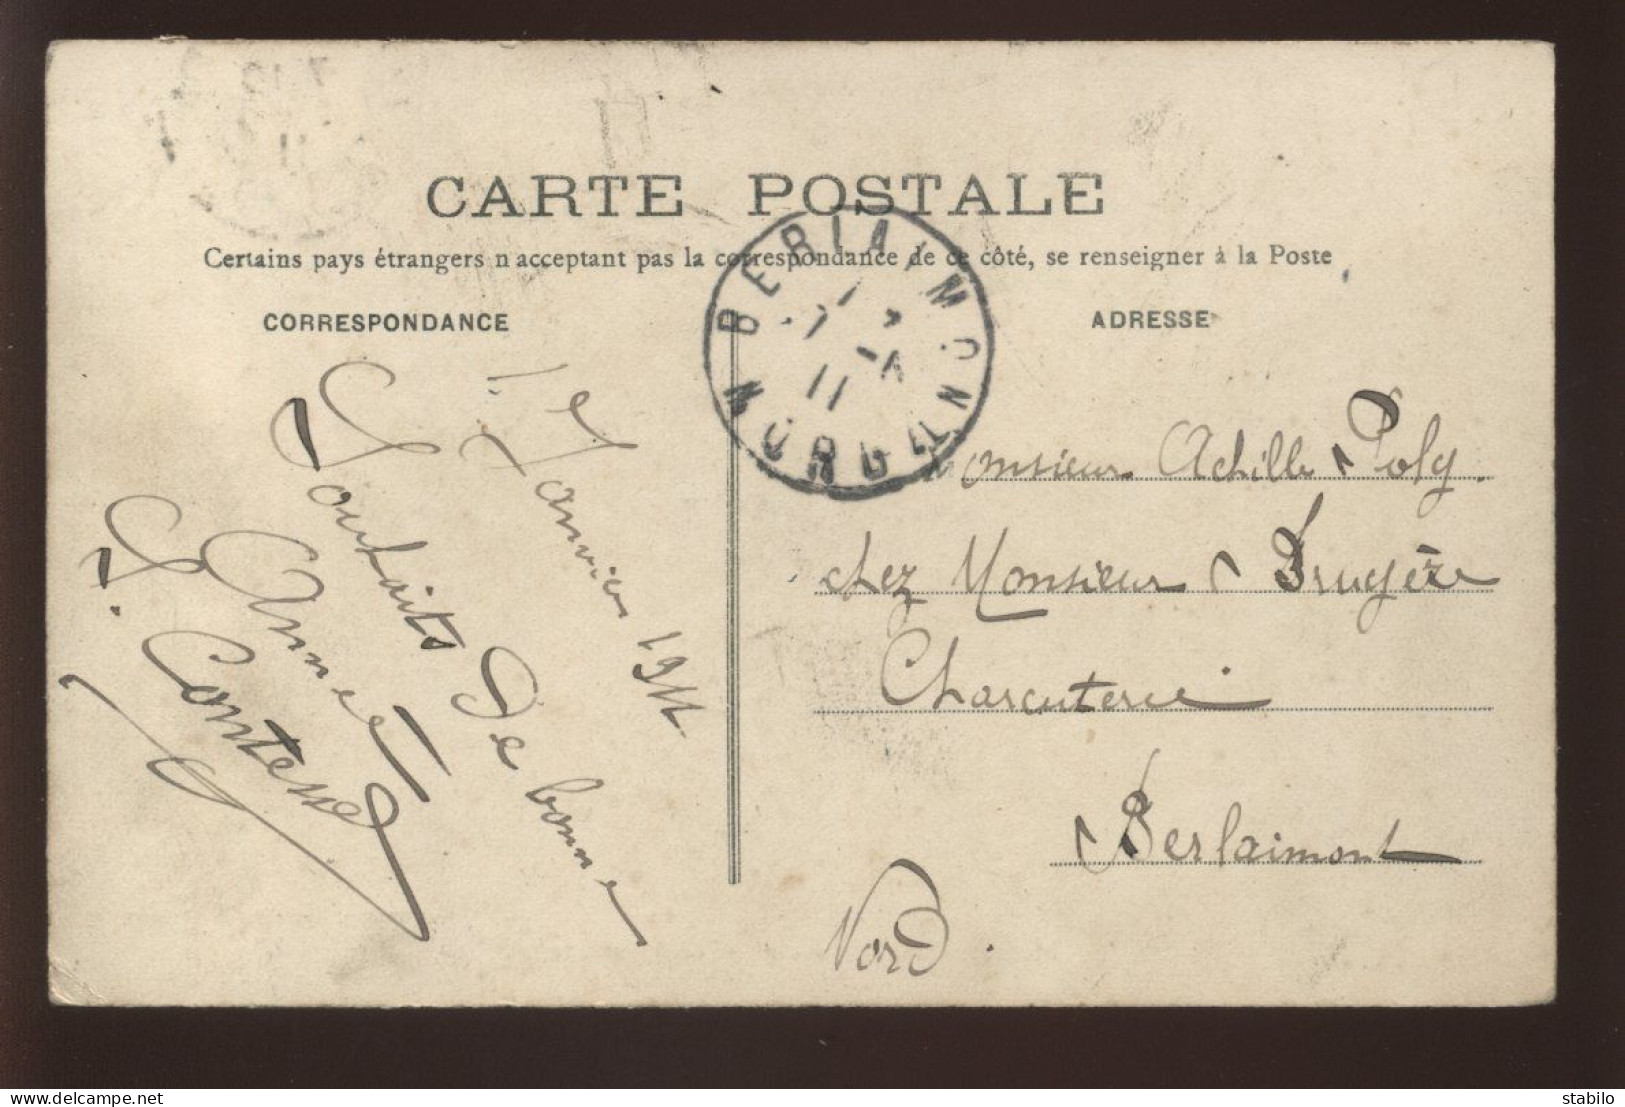 CARTE POSTALE
Certains pays étrangers n'acceptant pas la correspondance de ce côté, se renseigner à la Poste
CORRESPONDANCE
ADRESSE
BERLAIMONT
NORD
11
1er Janvier 1911
Souhaits de bonne
Année
S. Contesse
Monsieur Achille Poly
chez Monsieur Bruyère
Charcuterie
Berlaimont
Nord.
delcampe.net
stabilo